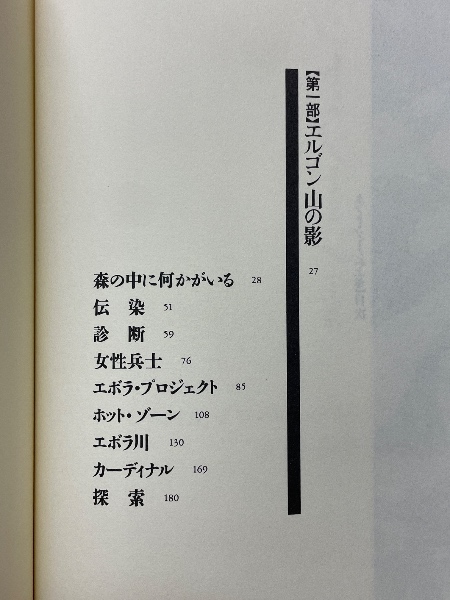 【第一部】エルゴン山の影 27
森の中に何かがいる 28
伝染 51
診断 59
女性兵士 76
エボラ・プロジェクト 85
ホット・ゾーン 108
エボラ川 130
カーディナル 169
探索 180